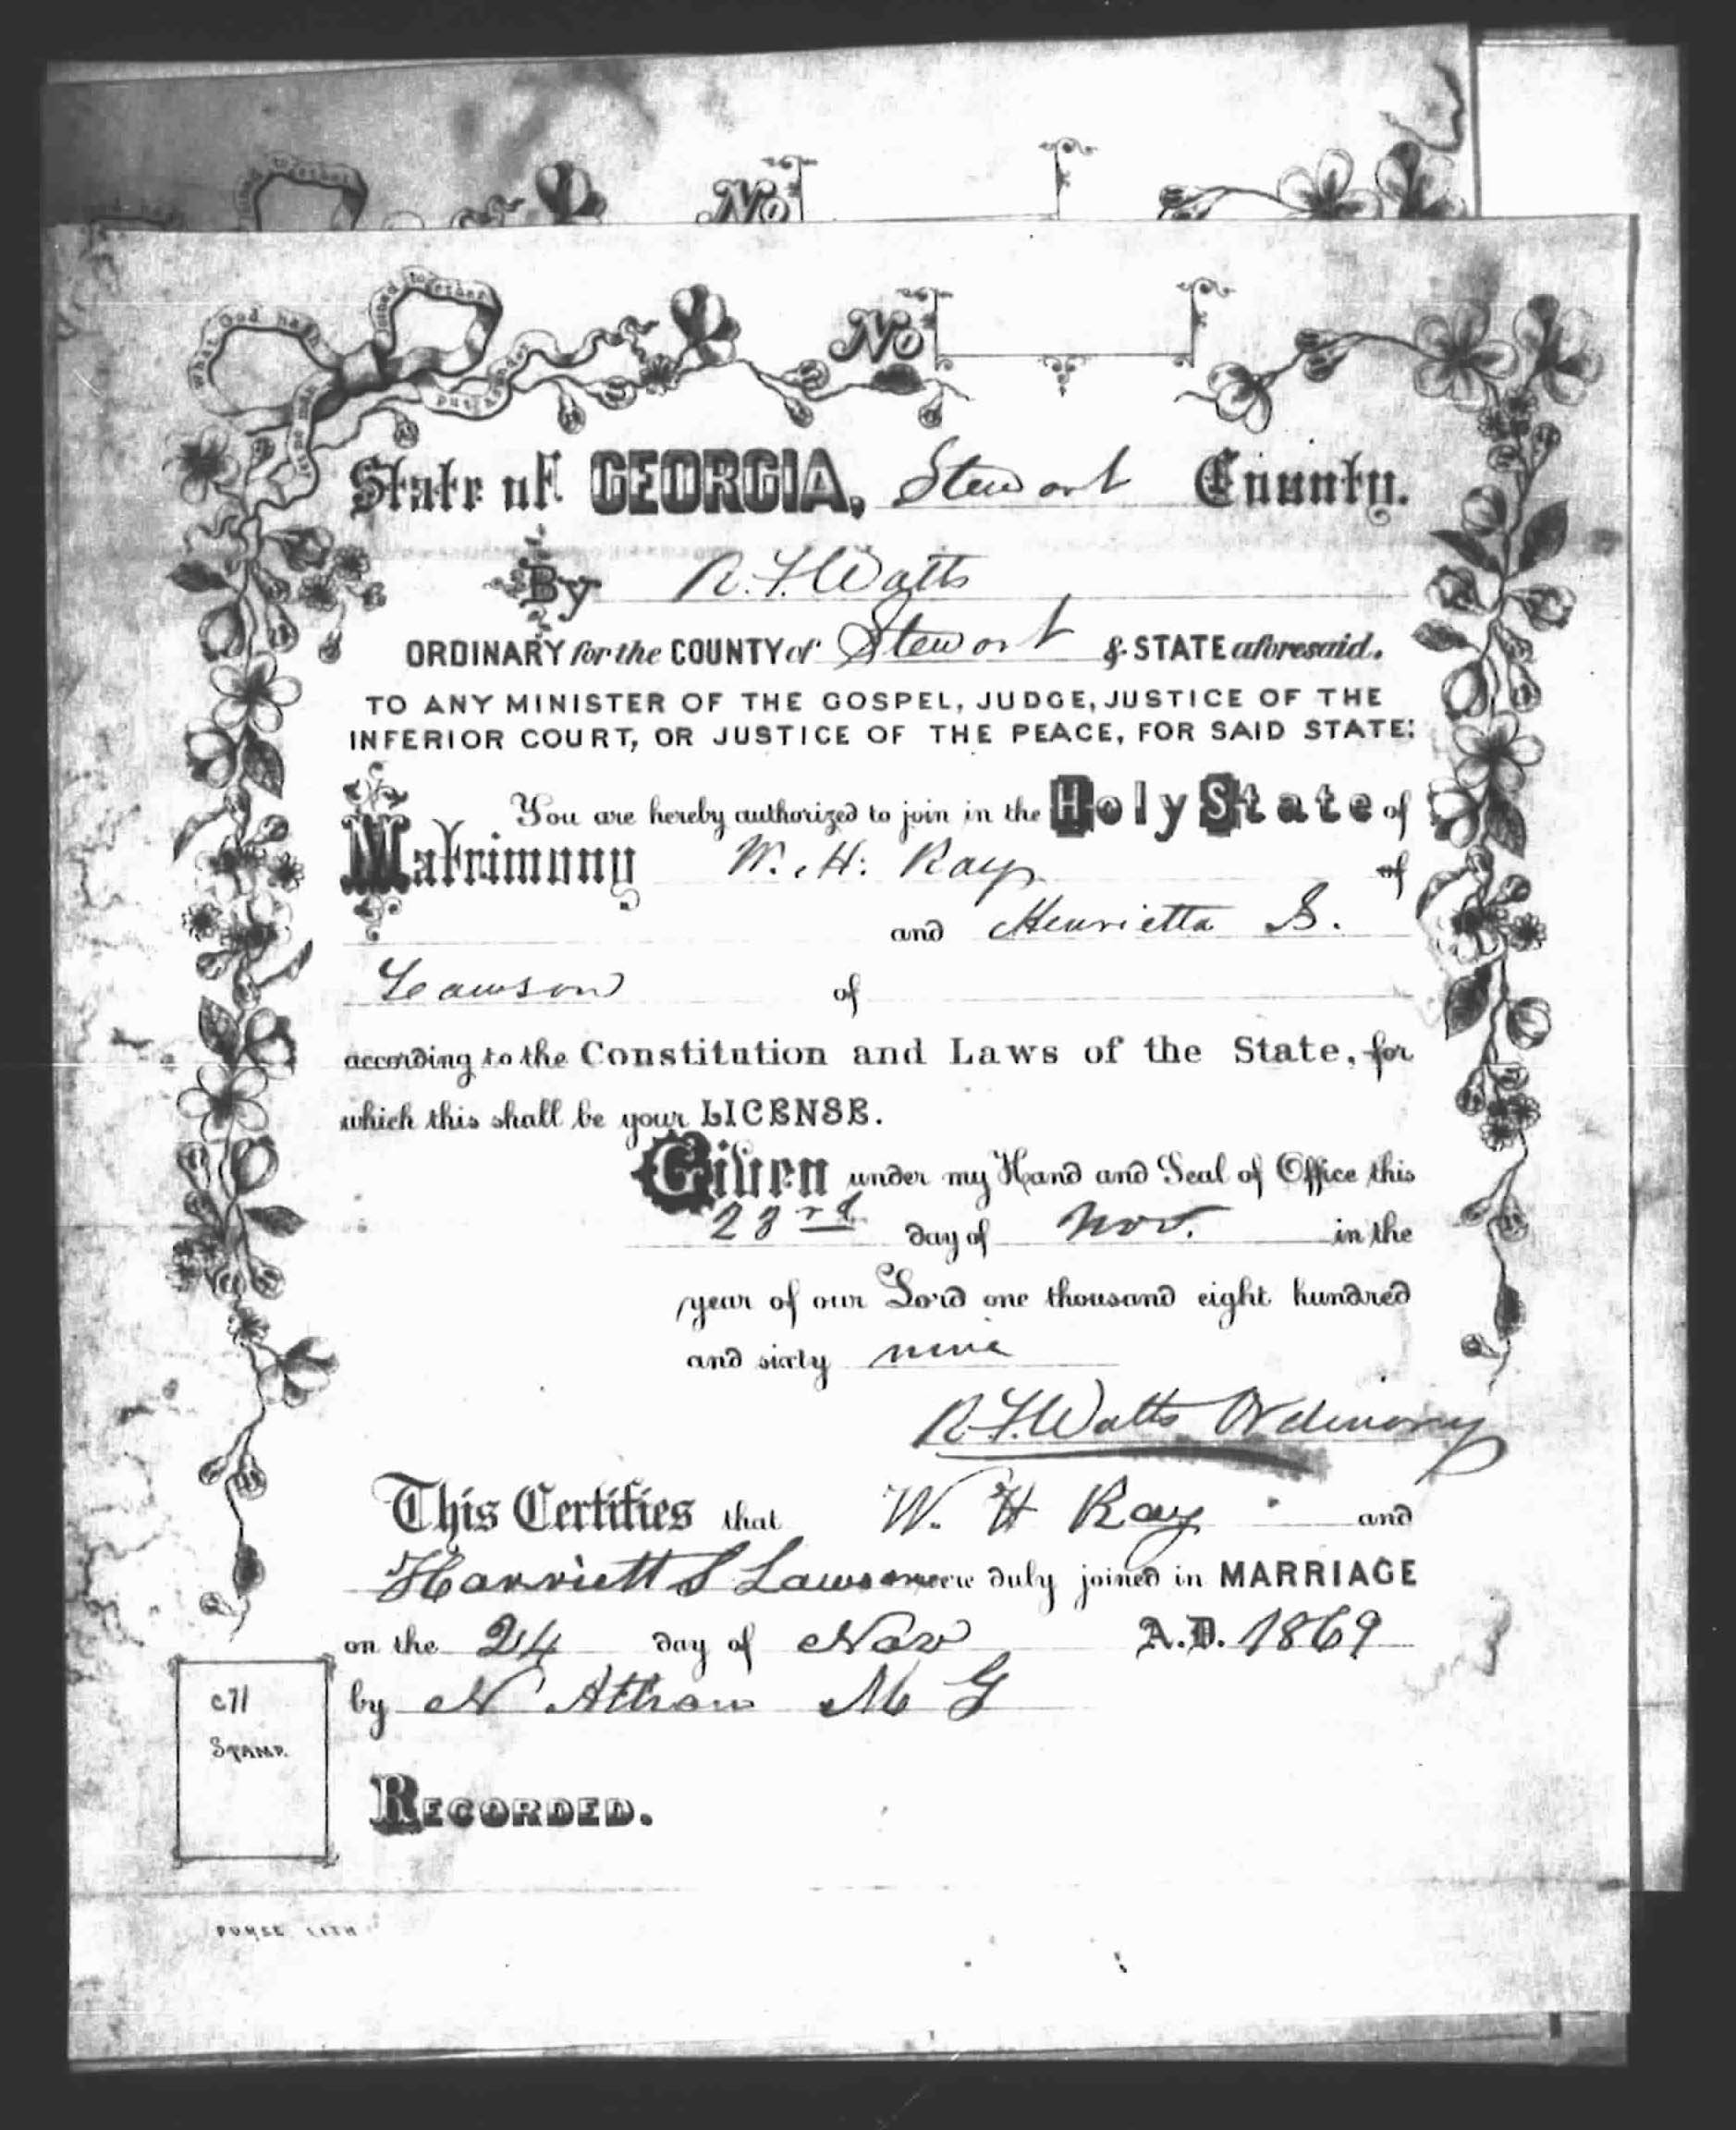 No
What God hath joined together
let no man put asunder
No
State of GEORGIA, Stewart County.
By R. F. Watts
ORDINARY for the COUNTY of Stewart & STATE aforesaid.
TO ANY MINISTER OF THE GOSPEL, JUDGE, JUSTICE OF THE
INFERIOR COURT, OR JUSTICE OF THE PEACE, FOR SAID STATE:
You are hereby authorized to join in the Holy State of
Matrimony W. H. Ray of
and Henrietta S.
Lawson of
according to the Constitution and Laws of the State, for
which this shall be your LICENSE.
Given under my Hand and Seal of Office this
23rd day of Nov. in the
year of our Lord one thousand eight hundred
and sixty nine
R. F. Watts Ordinary
This Certifies that W. H Ray and
Harriett S Lawson were duly joined in MARRIAGE
on the 24 day of Nov A.D. 1869
by N M G
STAMP.
RECORDED.
LITH